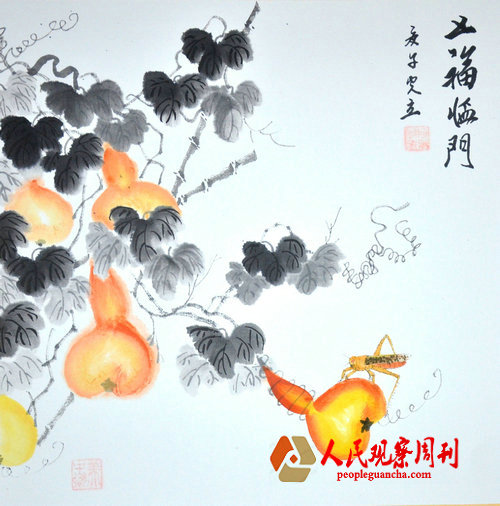 五福临門
庚子宪立
人民观察周刊
peopleguancha.com